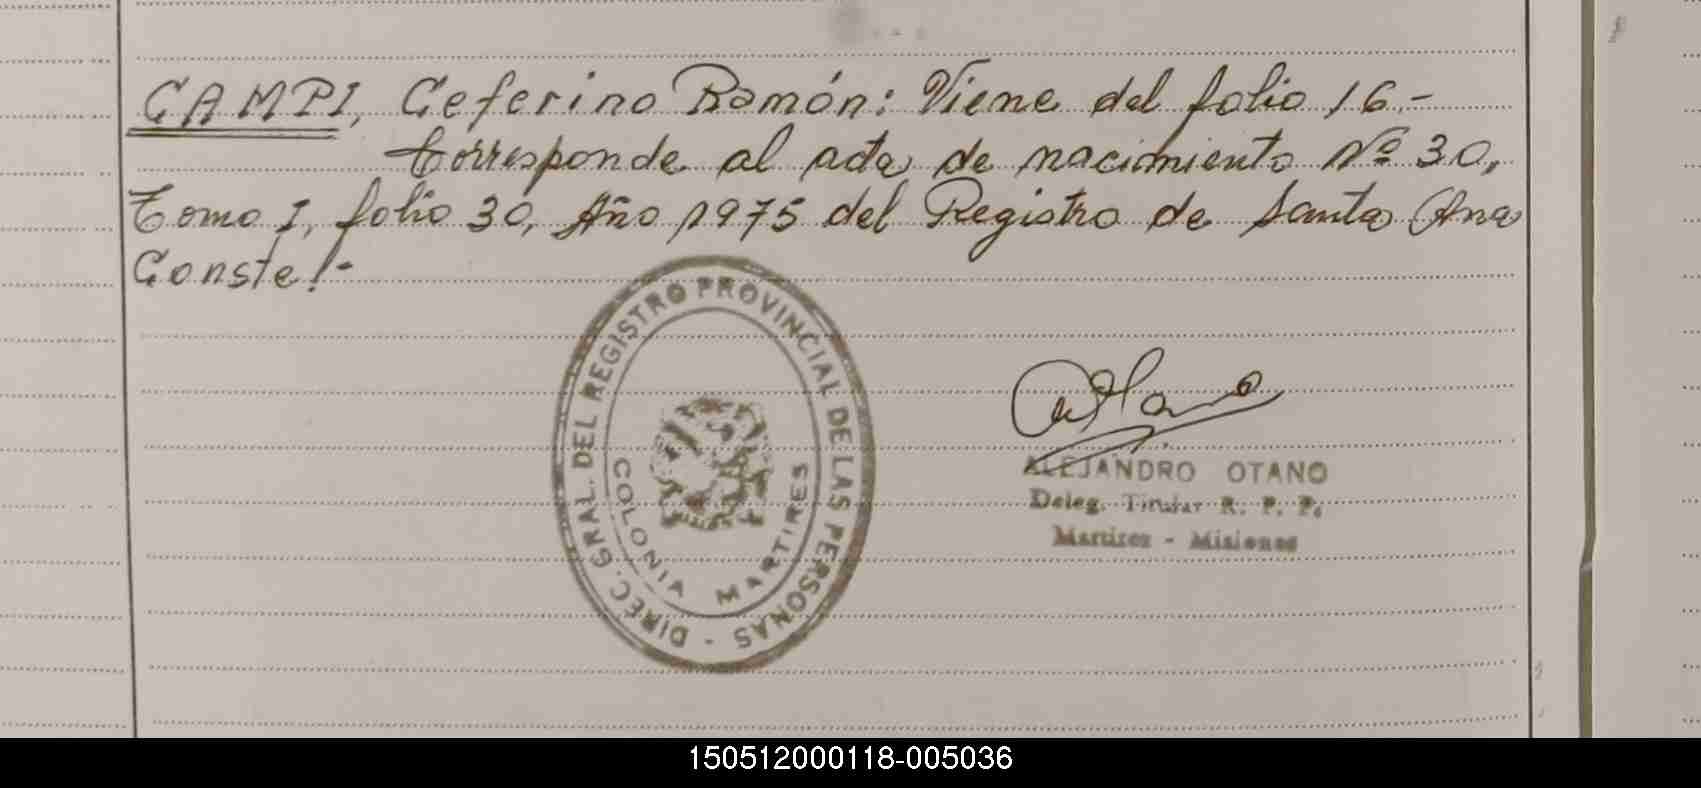 CAMPI, Ceferino Ramón: Viene del folio 16.-
Corresponde al acta de nacimiento Nº 30,
Tomo I, folio 30, Año 1975 del Registro de Santa Ana
Conste!-
DIREC. GRAL. DEL REGISTRO PROVINCIAL DE LAS PERSONAS -
COLONIA MARTIRES
ALEJANDRO OTANO
Deleg. Titular R. P. P.
Martires - Misiones
150512000118-005036